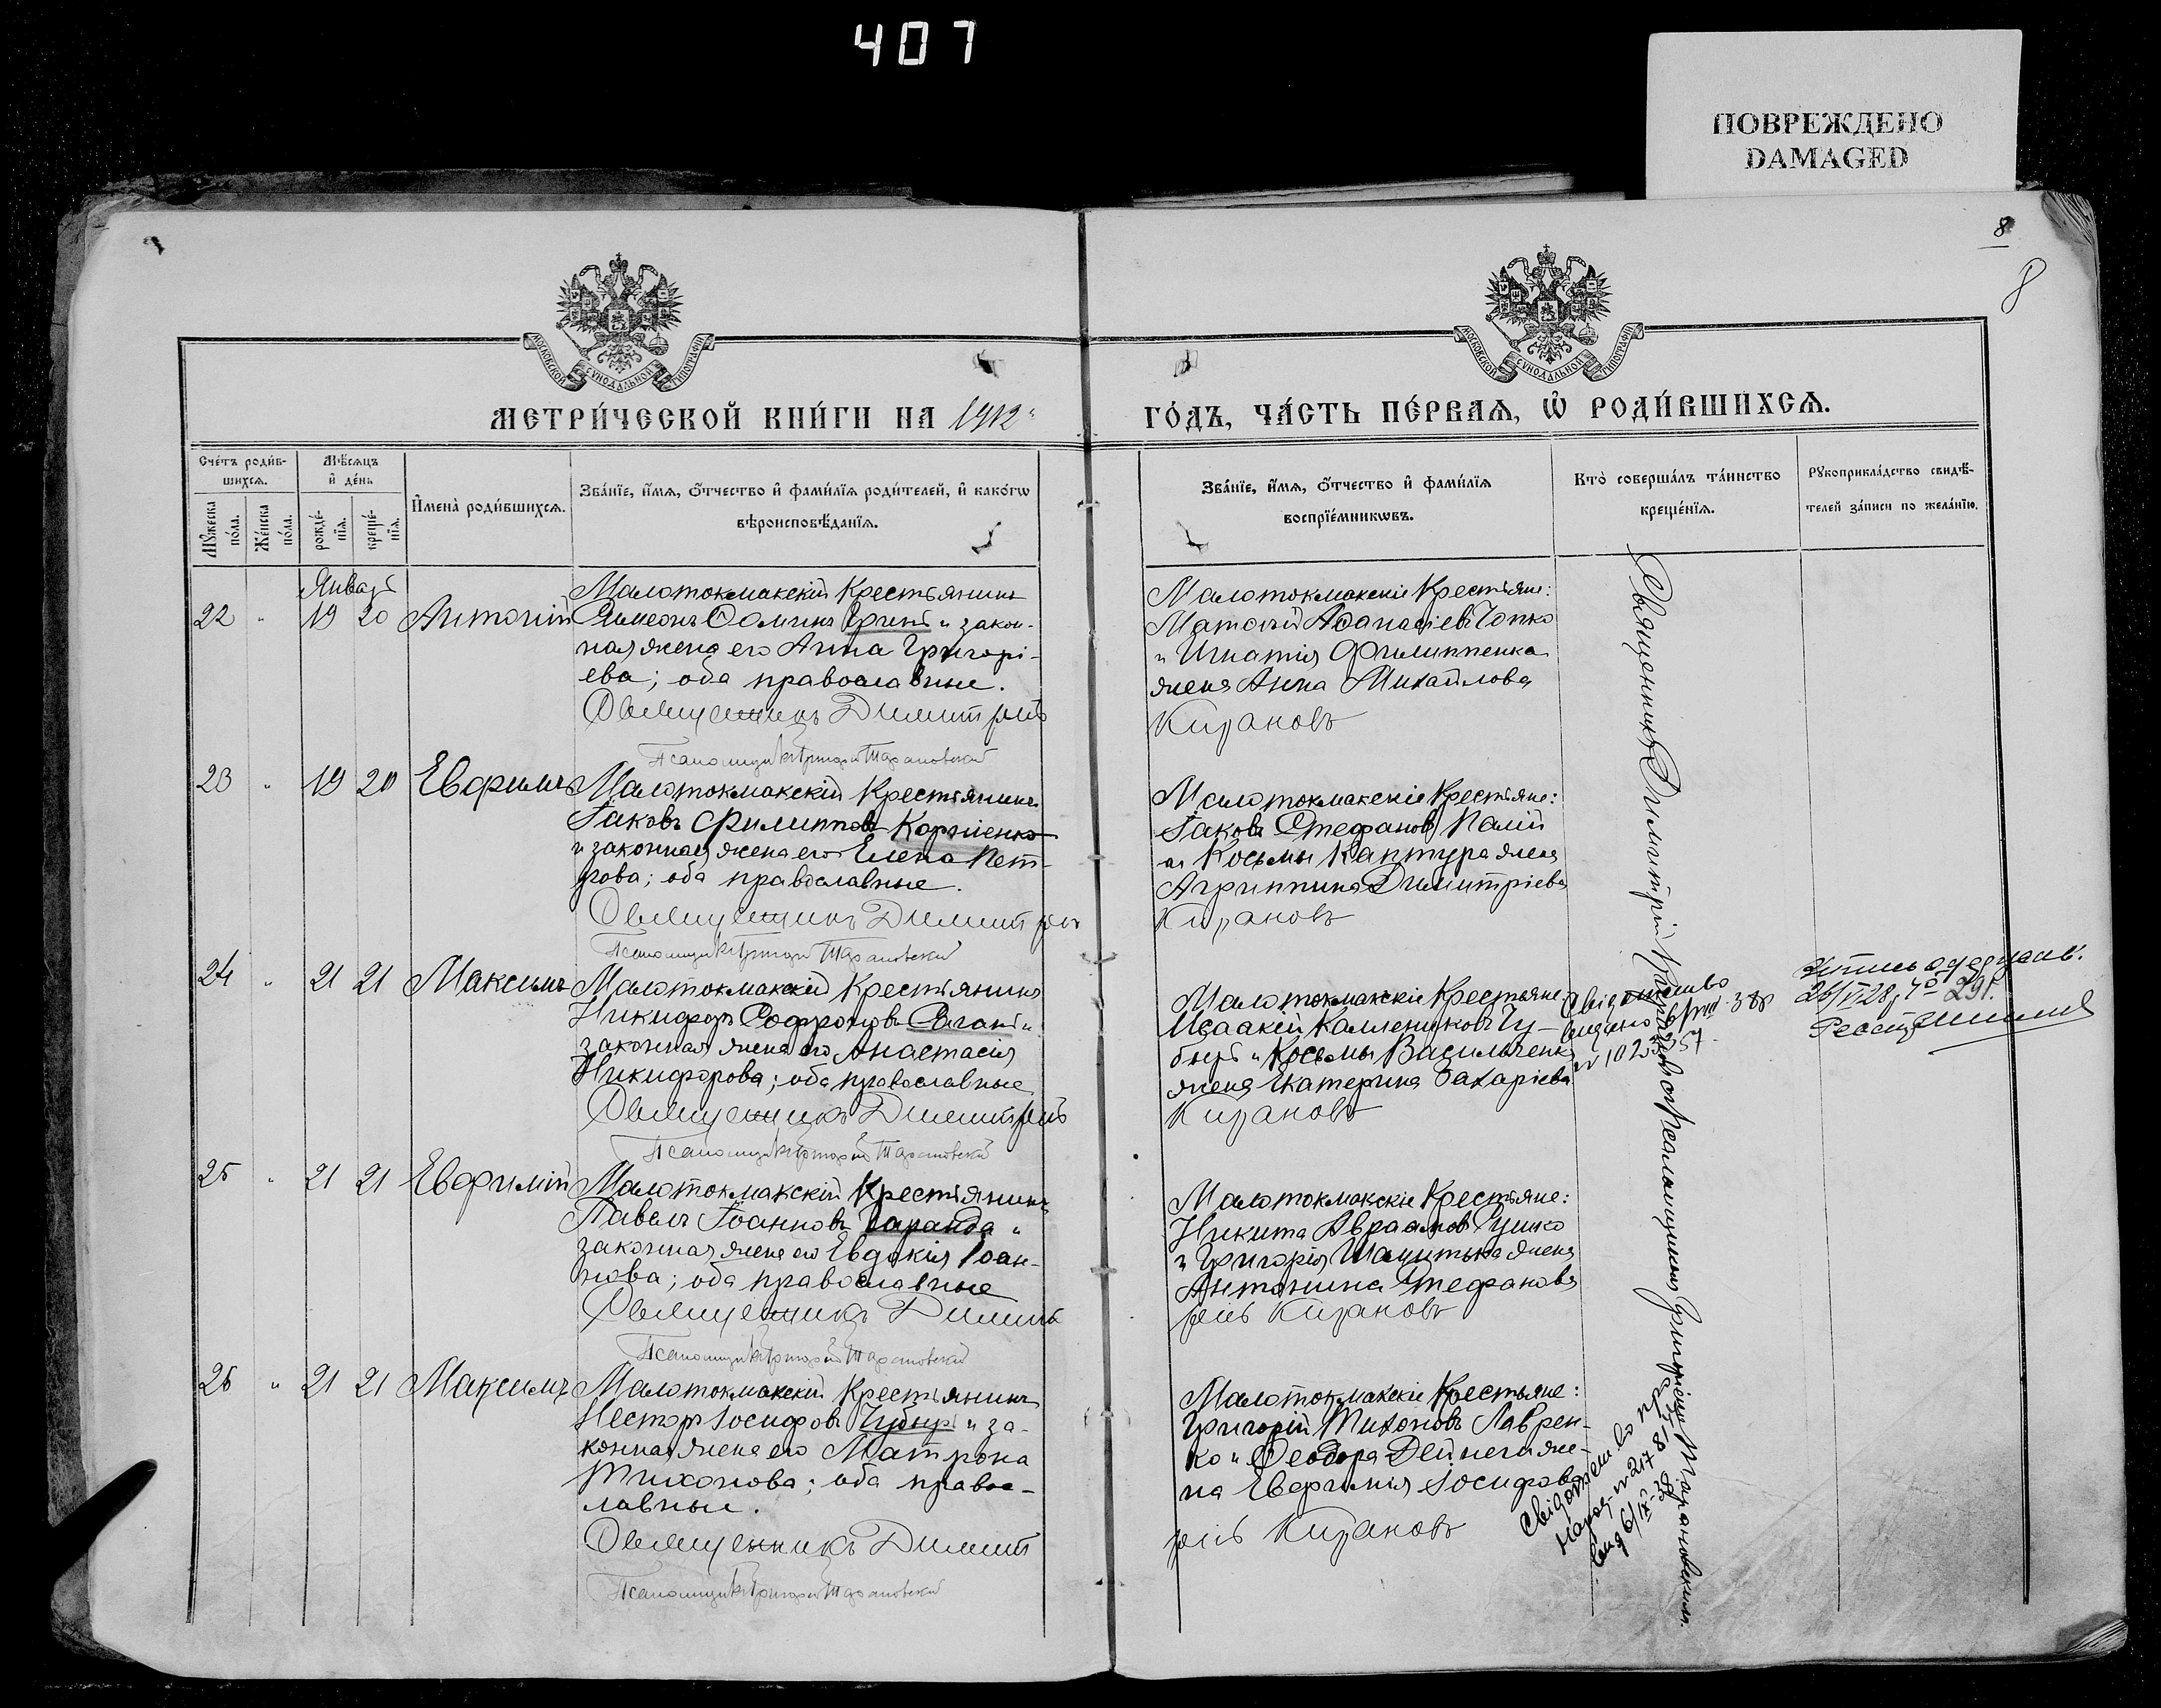 407
ПОВРЕЖДЕНО
DAMAGED
8
8
МОСКОВСКОЙ СѴНОДАЛЬНОЙ ТИПОГРАФІИ
МОСКОВСКОЙ СѴНОДАЛЬНОЙ ТИПОГРАФІИ
МЕТРИ́ЧЕСКОЙ КНИ́ГИ НА 1912
ГО́ДЪ, ЧА́СТЬ ПЕ́РВАѦ, Ѡ҆ РОДИ́ВШИХСѦ.
Сче́тъ роди́в-
шихсѧ.
Мꙋ́жеска по́ла.
Же́нска по́ла.
Мѣ́сѧцъ
и҆ де́нь
рожде́-
нїѧ.
креще́-
нїѧ.
И҆мена̀ роди́вшихсѧ.
Зва́нїе, и҆́мѧ, ѻ҆́тчество и҆ фами́лїѧ роди́телей, и҆ како́гѡ
вѣроисповѣ́данїѧ.
Зва́нїе, и҆́мѧ, ѻ҆́тчество и҆ фами́лїѧ
воспрїе́мникѡвъ.
Кто̀ соверша́лъ та́инство
креще́нїѧ.
Рꙋкоприкла́дство свидѣ́-
телей за́писи по жела́нїю.
Январь
22 " 19 20 Антоній
Малотокмакскій Крестьянинъ
Симеонъ Ѳоминъ и закон-
ная жена его Анна Григорі-
ева; оба православные.
Священникъ Димитрій
Псаломщикъ Григорій Тарановскій
Малотокмакскіе Крестьяне:
Матѳій Аѳанасіевъ Чопко
и Игнатія Филиппенка
жена Анна Михайлова
Кирановъ
23 " 19 20 Евфимъ
Малотокмакскій Крестьянинъ
Іаковъ Филипповъ Корніенко
и законная жена его Елена Пет-
рова; оба православные.
Священникъ Димитрій
Псаломщикъ Григорій Тарановскій
Малотокмакскіе Крестьяне:
Іаковъ Стефановъ Палій
и Косьмы Каптура жена
Агриппина Димитріева
Кирановъ
24 " 21 21 Максимъ
Малотокмакскій Крестьянинъ
Никифоръ Софроновъ и
законная жена его Анастасія
Никифорова; оба православные
Священникъ Димитрій
Псаломщикъ Григорій Тарановскій
Малотокмакскіе Крестьяне:
Исаакій Каллениковъ Чу-
бырь и Косьмы Васильченка
жена Екатерина Захаріева
Кирановъ
25 " 21 21 Евфимій
Малотокмакскій Крестьянинъ
Павелъ Іоанновъ Таранда и
законная жена его Евдокія Іоан-
нова; оба православные
Священникъ Димит
Псаломщикъ Григорій Тарановскій
Малотокмакскіе Крестьяне:
Никита Авраамовъ
и Григорія жена
Антонина Стефанова
рій Кирановъ
26 " 21 21 Максимъ
Малотокмакскій Крестьянинъ
Несторъ Іосифовъ Чубырь и за-
конная жена его Матрона
Тихонова; оба право-
славные.
Священникъ Димит
Псаломщикъ Григорій Тарановскій
Малотокмакскіе Крестьяне:
Григорій Тихоновъ Лаврен-
ко и Ѳеодора Дейнеги же-
на Евфимія Іосифова
рій Кирановъ
Священникъ Димитрій Кирановъ съ псаломщикомъ Григоріемъ Тарановскимъ.